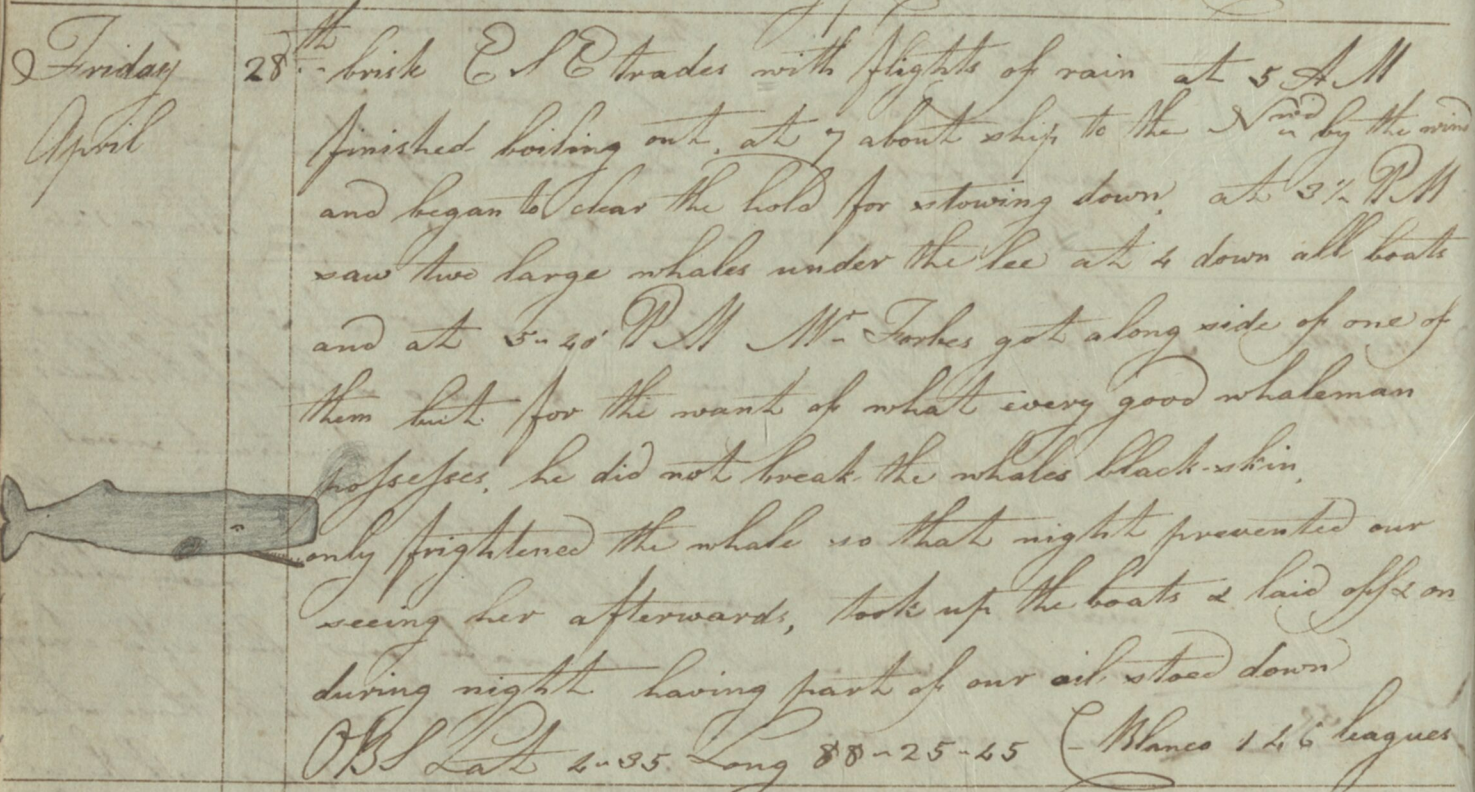 Friday 28th brisk E S E trades with flights of rain at 5 A M
April finished boiling out, at 7 about ship to the Nwd by the wind
and began to clear the hold for stowing down, at 3½ P M
saw two large whales under the lee at 4 down all boats
and at 5-40' P M Mr Forbes got along side of one of
them but for the want of what every good whaleman
possesses, he did not break the whales black-skin,
only frightened the whale so that night prevented our
seeing her afterwards, took up the boats & laid off & on
during night having part of our oil stoed down
OBS Lat 4-35 Long 88-25-45 C- Blanco 146 leagues